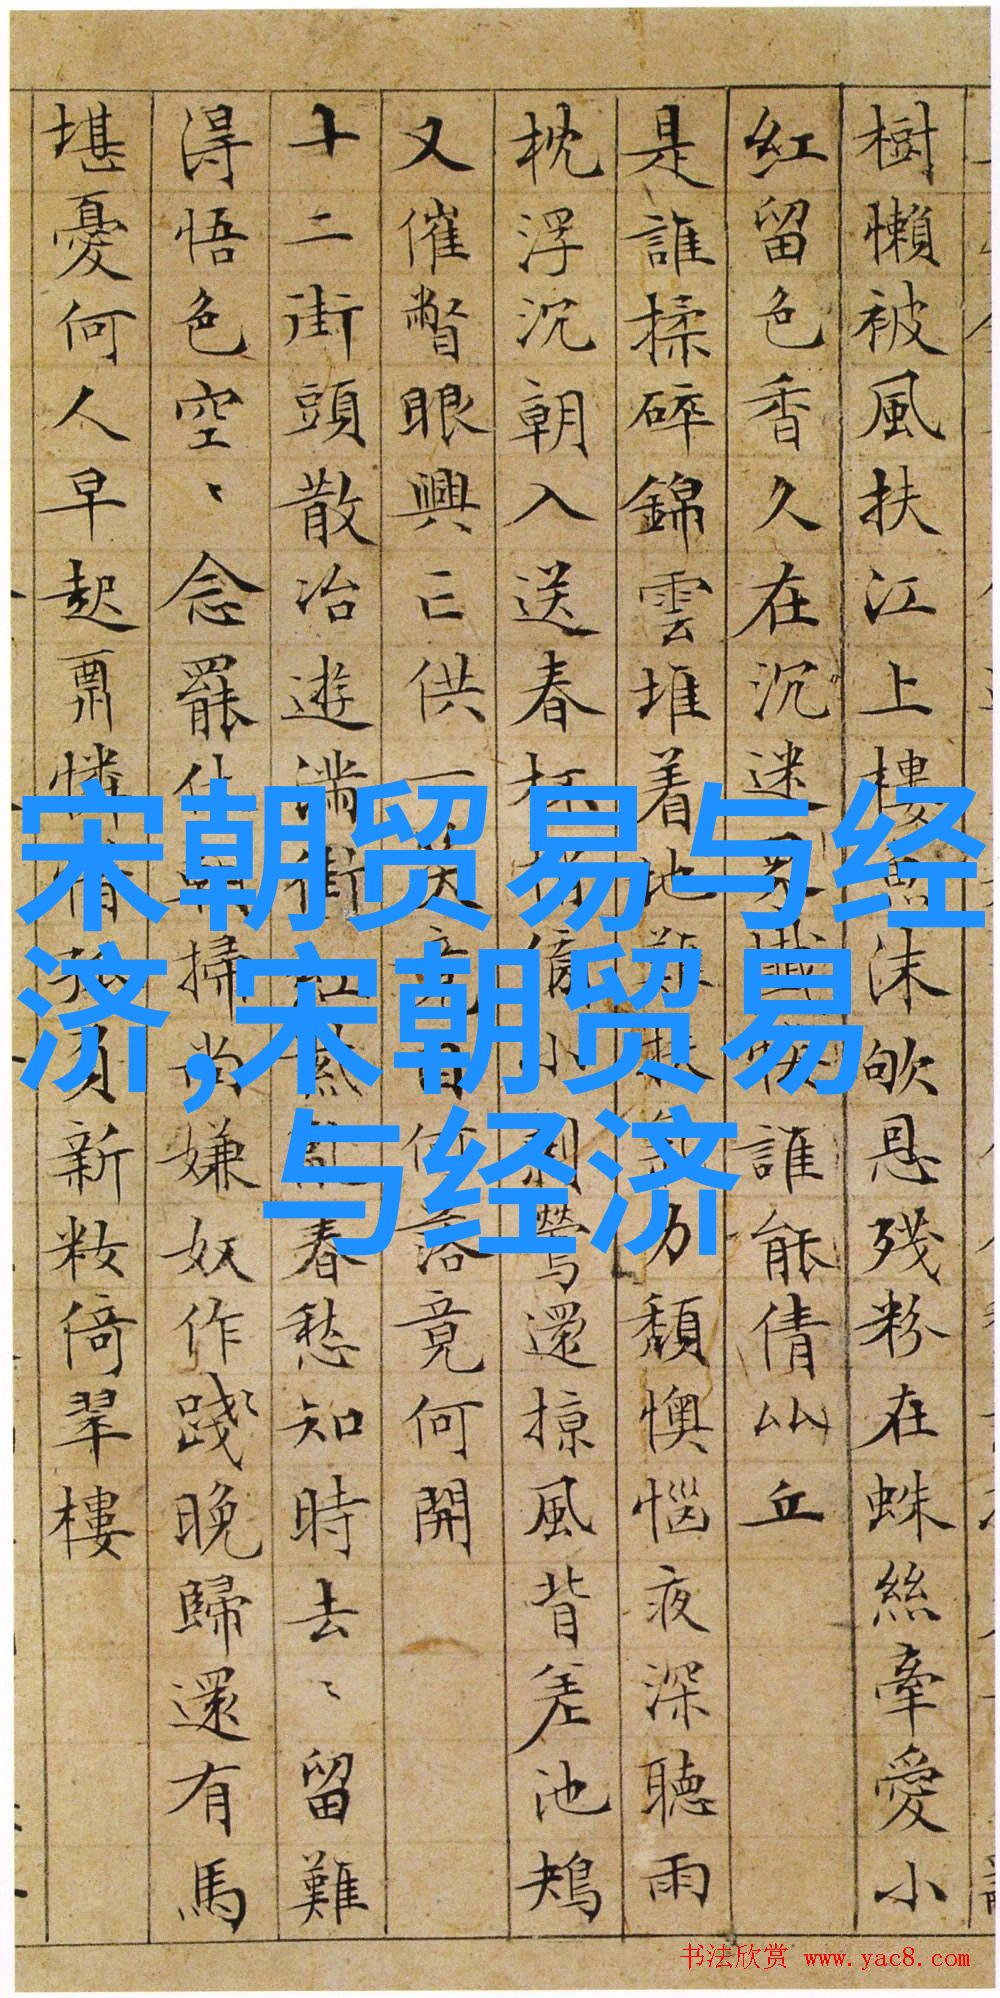 樹懶被風扶江上樓
沫欨恩殘粉在蛛絲牽愛小
紅留色香久在沉迷
誰能倩山丘
是誰揉碎錦雲堆着地難扶
力頹懊惱夜深聽雨
枕浮沉朝入送春杯
小
鶯還掠風背差池鴂
又催瞥眼興亡供一笑
竟何開
十二街頭散冶遊滿街
春愁知時去〻留難
得悟色空〻念罷
掃尚嫌奴作踐〻晚歸還有馬
堪憂何人早起
憐惜
負新妝倚翠樓
宋朝贸易与经
济,宋朝贸易
与经济
书法欣赏 www.yac8.com